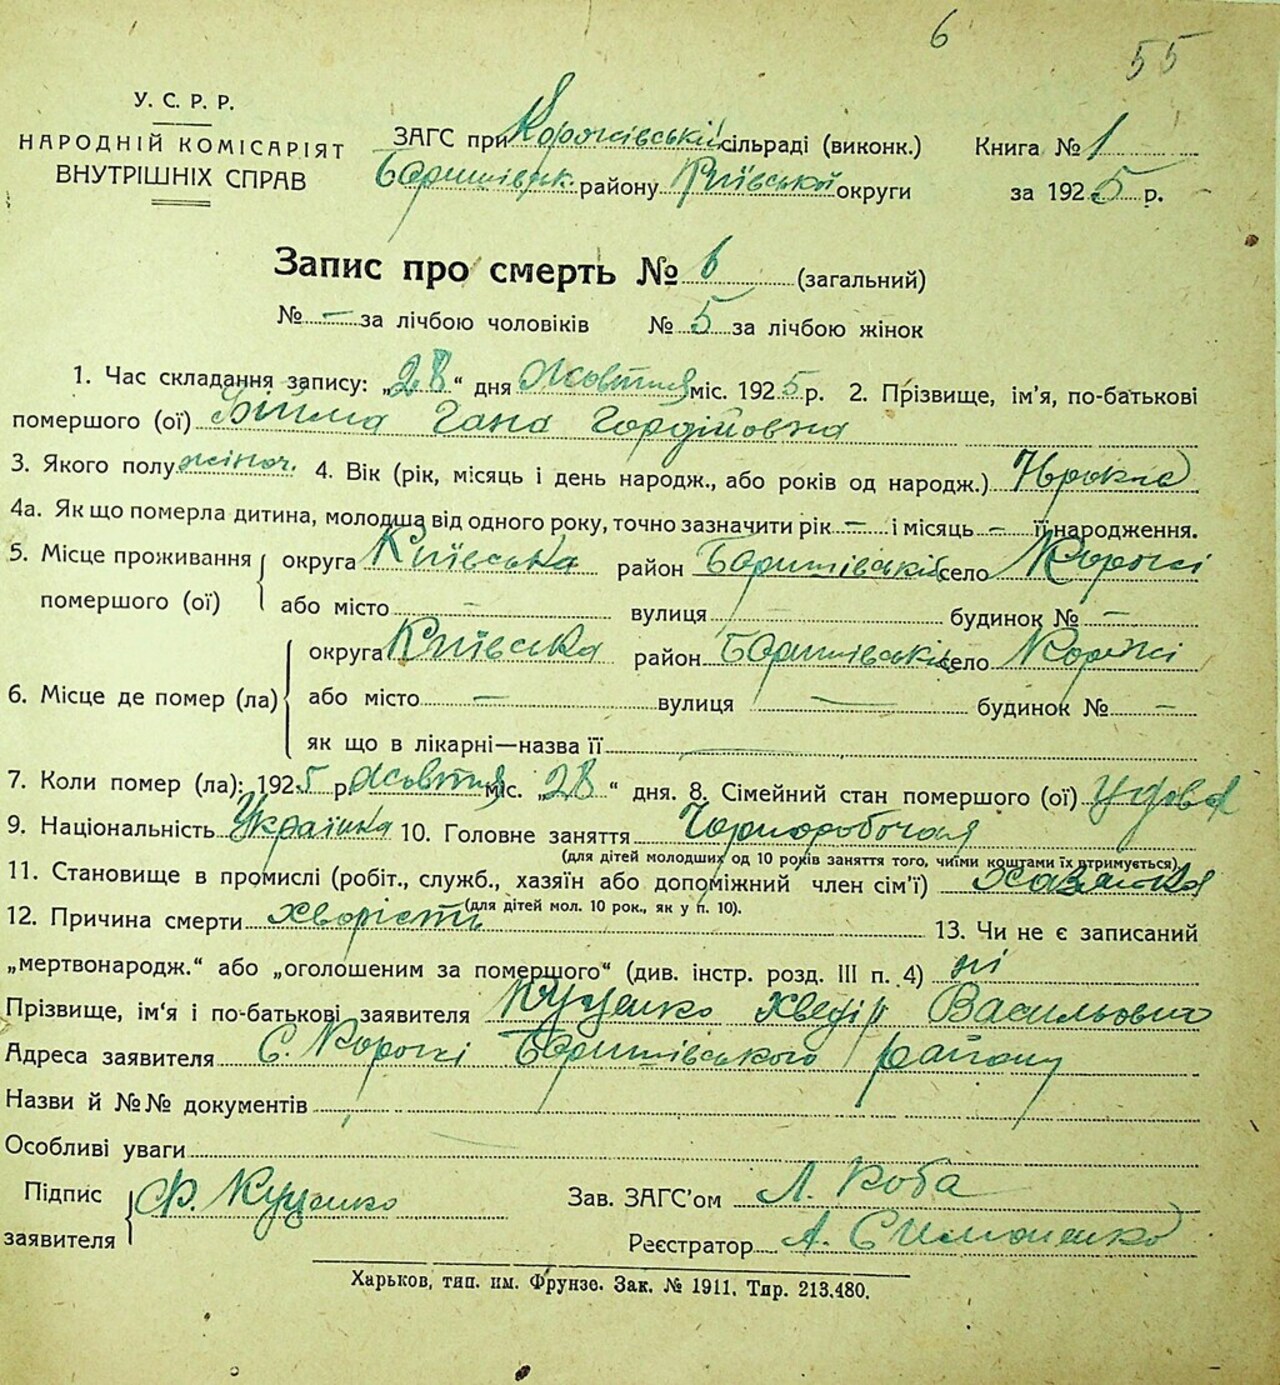 6
55
У. С. Р. Р.
НАРОДНІЙ КОМІСАРІЯТ
ВНУТРІШНІХ СПРАВ
ЗАГС при Коржівській сільраді (виконк.)
Баришівськ. району Київської округи
Книга № 1
за 1925 р.
Запис про смерть № 6 (загальний)
№ — за лічбою чоловіків № 5 за лічбою жінок
1. Час складання запису: „28“ дня Жовтня міс. 1925 р. 2. Прізвище, ім'я, по-батькові
помершого (ої) Гана Гордійовна
3. Якого полу жіноч. 4. Вік (рік, місяць і день народж., або років од народж.)
4а. Як що померла дитина, молодша від одного року, точно зазначити рік — і місяць — її народження.
5. Місце проживання помершого (ої) округа Київська район Баришівський село Коржі
або місто — вулиця — будинок № —
6. Місце де помер (ла) округа Київська район Баришівській село Коржі
або місто — вулиця — будинок № —
як що в лікарні—назва її —
7. Коли помер (ла): 1925 р. Жовтня міс. „28“ дня. 8. Сімейний стан помершого (ої) удова
9. Національність Українка 10. Головне заняття Чорноробочая
(для дітей молодших од 10 років заняття того, чиїми коштами їх втримується).
11. Становище в промислі (робіт., служб., хазяїн або допоміжний член сім'ї) Хазяйка
(для дітей мол. 10 рок., як у п. 10).
12. Причина смерти хворість 13. Чи не є записаний
„мертвонародж.“ або „оголошеним за помершого“ (див. інстр. розд. III п. 4) ні
Прізвище, ім'я і по-батькові заявителя Куценко Хведір Васильович
Адреса заявителя С. Коржі Баришівського району
Назви й №№ документів
Особливі уваги
Підпис заявителя Ф. Куценко
Зав. ЗАГС'ом Л. Коба
Реєстратор А. Симоненко
Харьков, тип. им. Фрунзе. Зак. № 1911. Тир. 213.480.